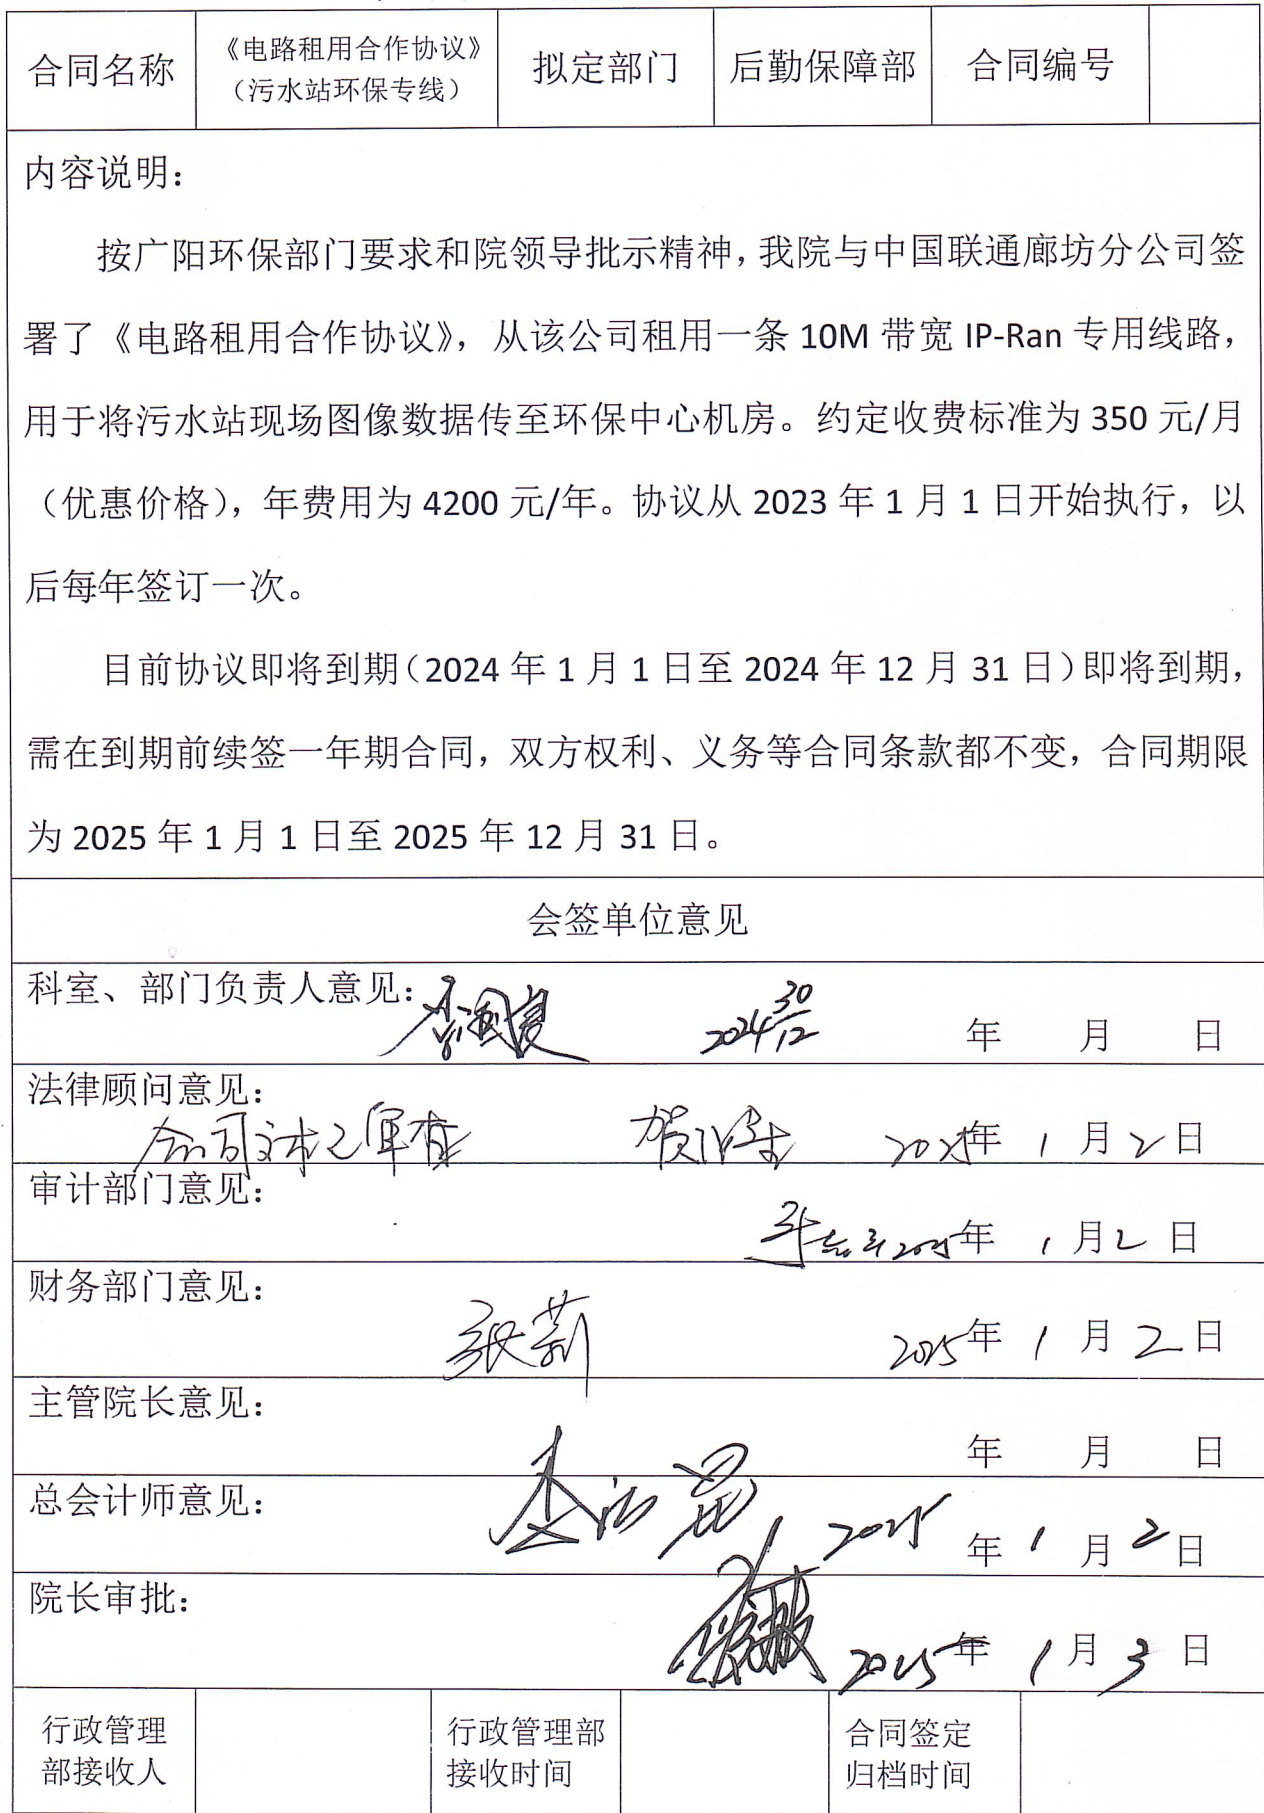 合同名称 《电路租用合作协议》（污水站环保专线） 拟定部门 后勤保障部 合同编号
内容说明：
按广阳环保部门要求和院领导批示精神，我院与中国联通廊坊分公司签
署了《电路租用合作协议》，从该公司租用一条 10M 带宽 IP-Ran 专用线路，
用于将污水站现场图像数据传至环保中心机房。约定收费标准为 350 元/月
（优惠价格），年费用为 4200 元/年。协议从 2023 年 1 月 1 日开始执行，以
后每年签订一次。
目前协议即将到期（2024 年 1 月 1 日至 2024 年 12 月 31 日）即将到期，
需在到期前续签一年期合同，双方权利、义务等合同条款都不变，合同期限
为 2025 年 1 月 1 日至 2025 年 12 月 31 日。
会签单位意见
科室、部门负责人意见：
2024 30/12 年 月 日
法律顾问意见：
合同文本已审查 2025年 1 月 2 日
审计部门意见：
2025年 1 月 2 日
财务部门意见：
张莉 2025年 1 月 2 日
主管院长意见：
年 月 日
总会计师意见：
2025 年 1 月 2 日
院长审批：
2025年 1 月 3 日
行政管理部接收人 行政管理部接收时间 合同签定归档时间